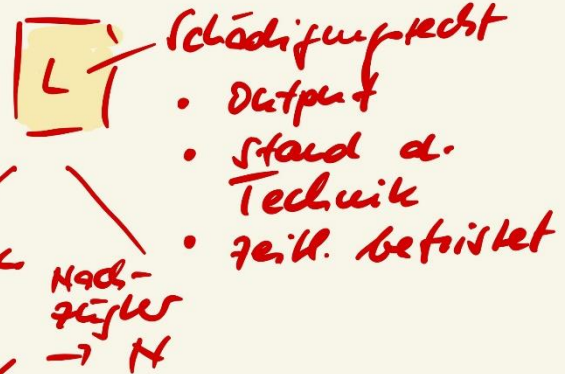 L
Schädigungsrecht
• Output
• Stand d.
Technik
• zeitl. befristet
Nach-
zügler
→ N